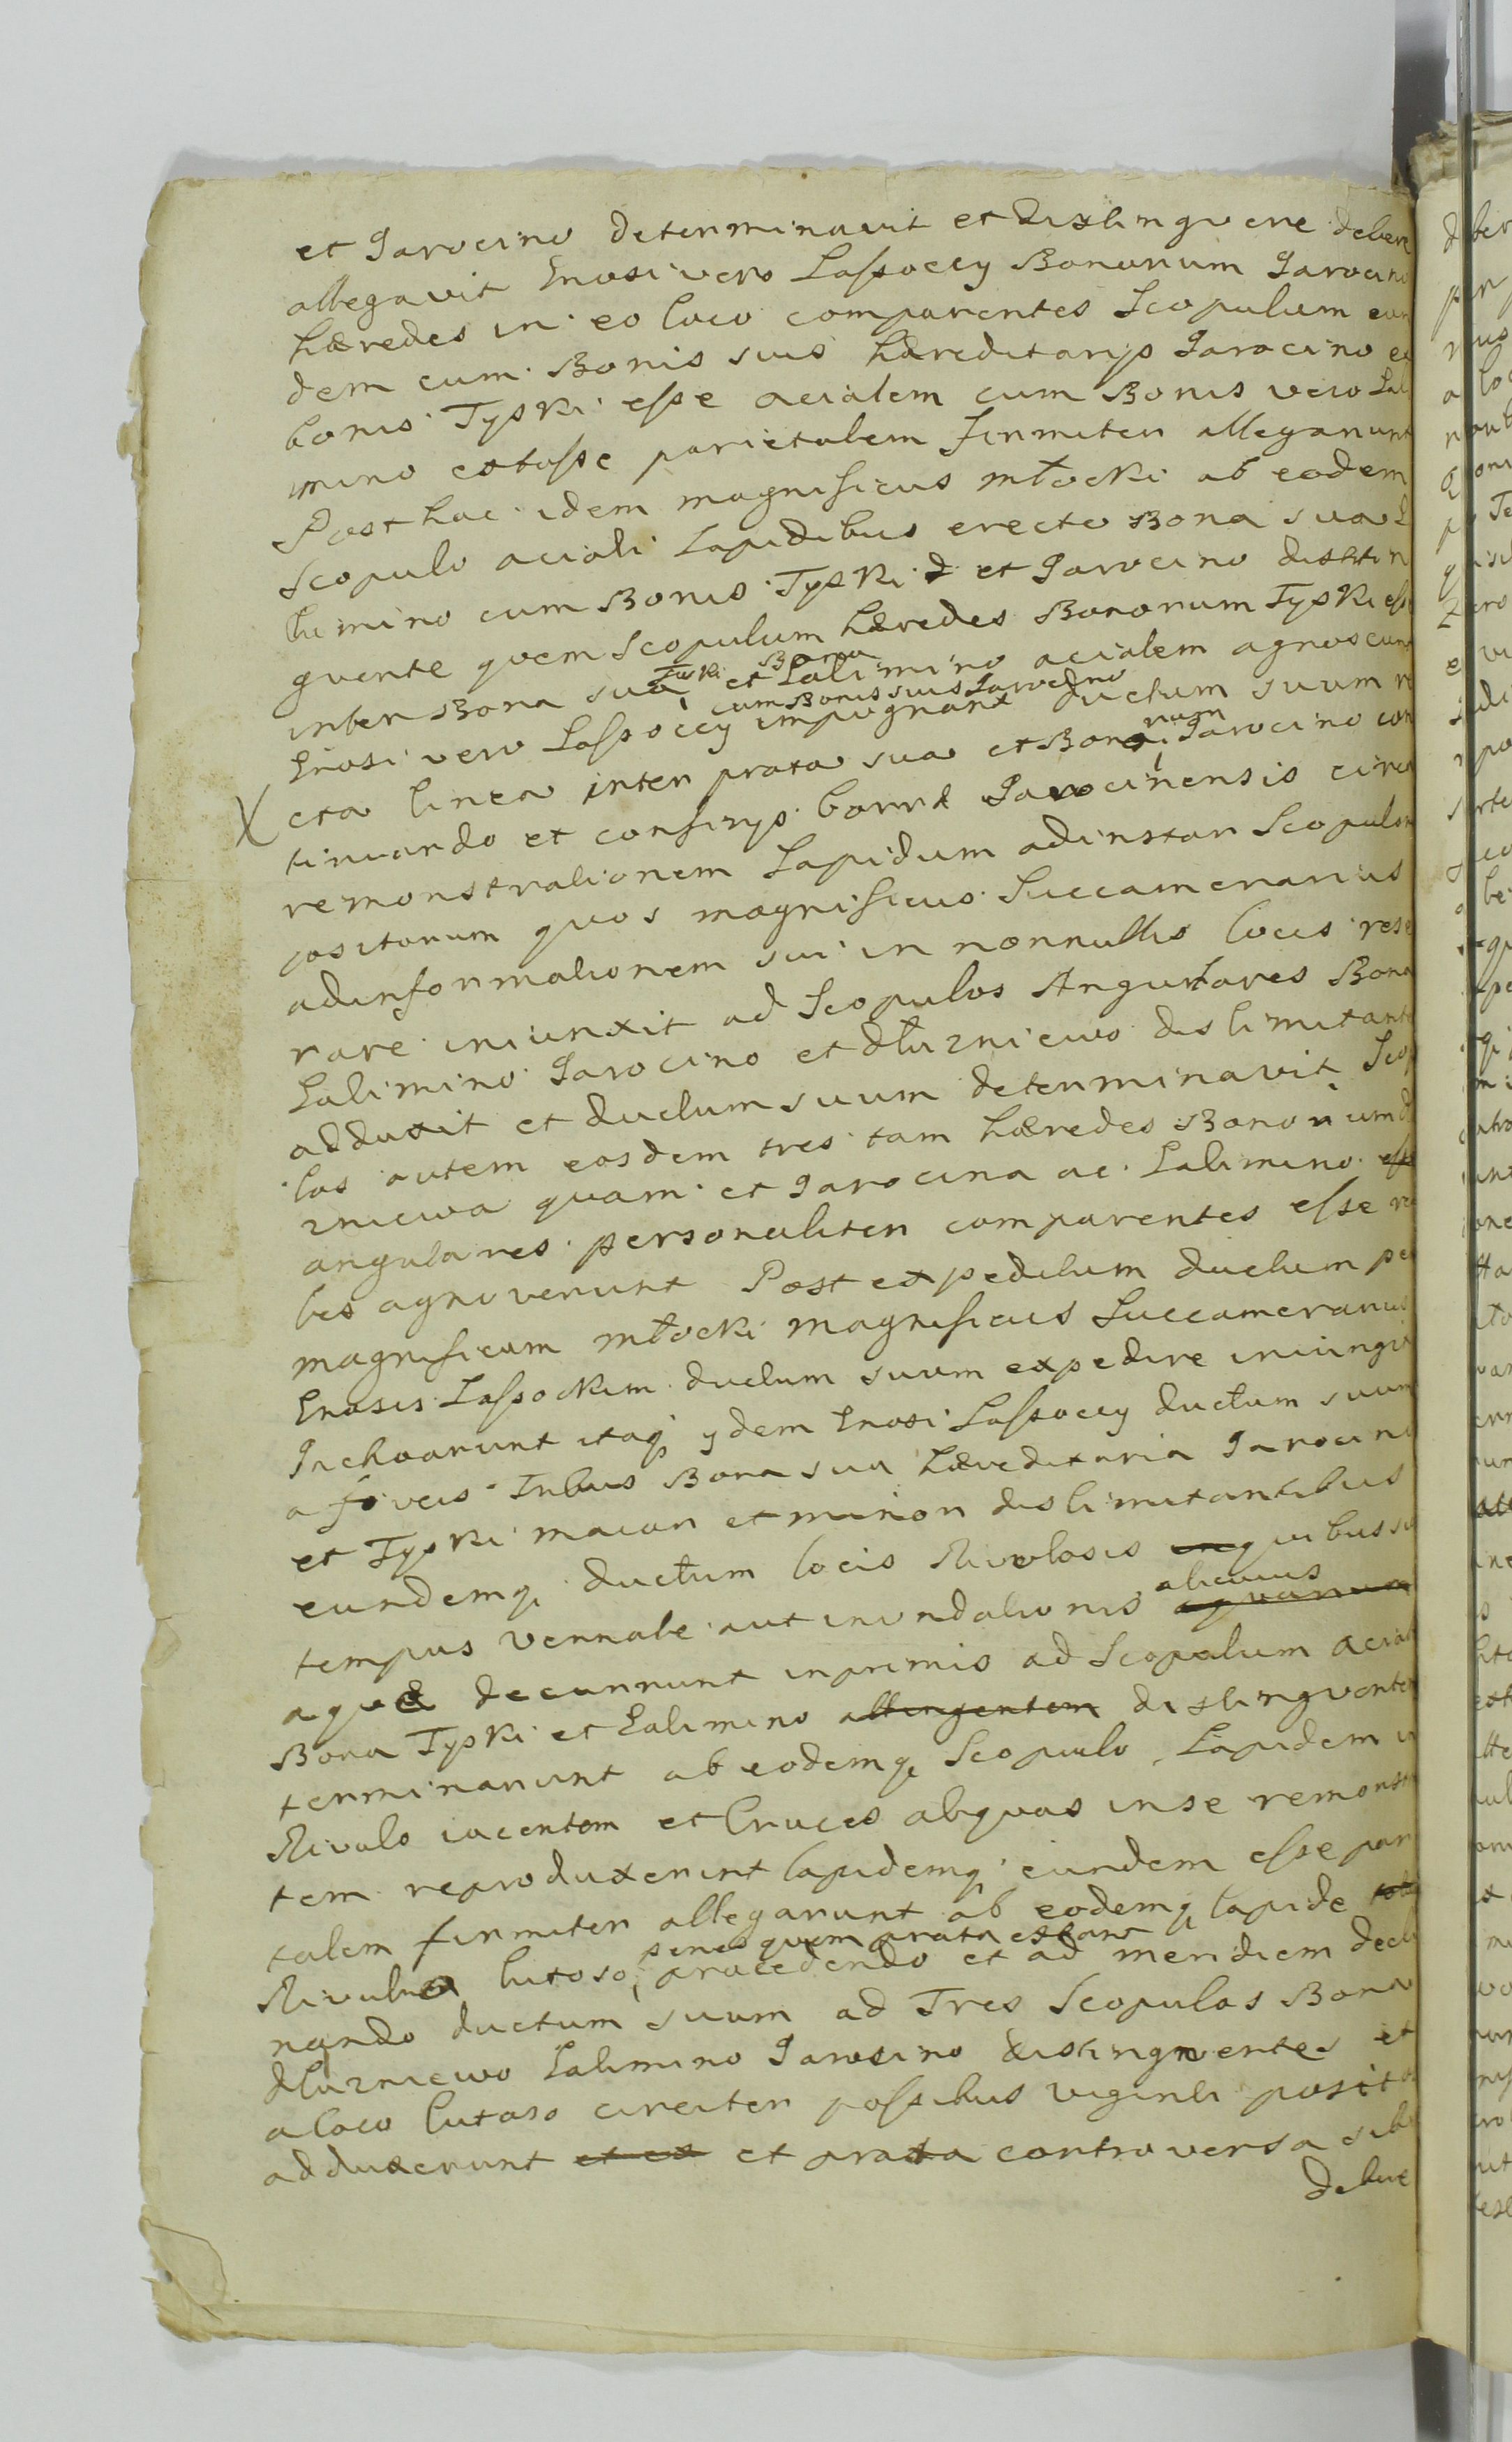 et Jarocino determinavit et distingvere debere
allegavit Gnosi vero Lassoccy Bonorum Jarocino
hæredes in eo loco comparentes Scopulum eun
dem cum Bonis suis hæreditarijs Jarocino et
bonis Tyski esse acialem cum Bonis vero Lali
mino extasse parietalem firmiter allegarunt
Post hac idem magnificus młocki ab eodem
Scopulo aciali Lapidibus erecto Bona sua
limino cum Bonis Tyski et Jarocino distin
gvente qvem Scopulum hæredes Bonorum Tyski esse
inter Bona sua Tyski et Bona Lalimino acialem agnoscunt
Gnosi vero Lassoccy cum Bonis suis Jarocino impugnant ductum suum re
cta linea inter prata sua et Bonorum Jarocino con
tinuando et confinijs borræ Jarocinensis circa
remonstrationem Lapidum adinstar Scopulorum
positorum qvos magnificus Succamerarius
adinformationem sui in nonnullis locis rese
rare iniunxit ad Scopulos Angulares Bona
Lalimino Jarocino et dłuzniewo dislimitantes
adduxit et ductum suum determinavit Scopu
los autem eosdem tres tam hæredes Bonorum dłu
zniewa qvam et Jarocina ac Lalimino esse
angulares personaliter comparentes esse
les agnoverunt Post expeditum ductum per
magnificum młocki magnificus Succamerarius
Gnosis Lassockim ductum suum expedire iniungit
Inchoarunt itaq ydem Gnosi Lassoccy ductum suum
a foveis Tribus Bona sua hæreditaria Jarocino
et Tyski maior et minor dislimitantibus
eundemq ductum locis Rivolosis in qvibus
tempus vernale aut inundationis alicuius aqvarum
aqvæ decurrunt inprimis ad Scopulum acialem
Bona Tyski et Lalimino attingentem distingventem
terminarunt ab eodemq Scopulo Lapidem in
Rivulo iacentem et Cruces aliqvas inse remonstran
tem reproduxerunt lapidemq eundem esse parie
talem firmiter allegarunt ab eodemq lapide
Rivulo lutoso, penes qvem prata extant procedendo et ad meridiem decli
nando ductum suum ad Tres Scopulos Bona
dłuzniewo Lalimino Jarocino distingventes et
a loco lutoso circiter passibus viginti positos
adduxerunt et ex et prata controversa sibi
debue